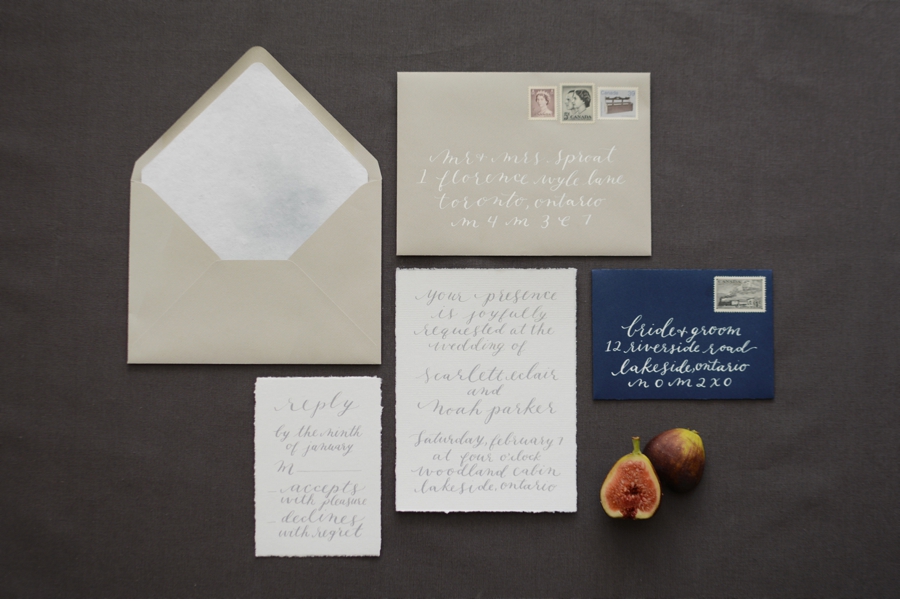 mr + mrs. sprout
1 florence wyle lane
toronto, ontario
m 4 m 3 e 7
your presence
is joyfully
requested at the
wedding of
scarlett eclair
and
noah parker
saturday, february 7
at four o'clock
woodland cabin
lakeside, ontario
bride + groom
12 riverside road
lakeside, ontario
n 0 m 2 x 0
reply
by the month
of january
m
accepts
with pleasure
declines
with regret